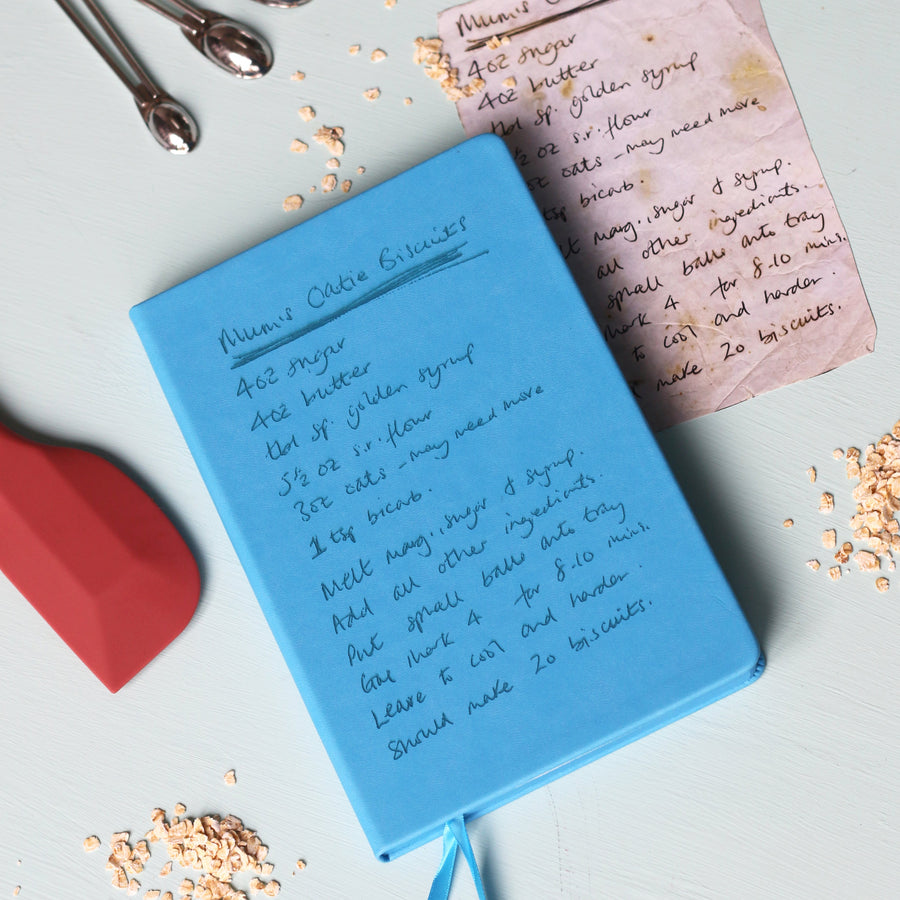 Mum's Oatie Biscuits
4oz sugar
4oz butter
tbl sp. golden syrup
5½ oz s.r. flour
3oz oats - may need more
1 tsp bicarb.
Melt marg., sugar & syrup.
Add all other ingredients.
Put small balls onto tray
Gas mark 4 for 8-10 mins.
Leave to cool and harden.
Should make 20 biscuits.
Mum's
4oz sugar
4oz butter
tbl sp. golden syrup
½ oz s.r. flour
oz oats - may need more
tsp bicarb.
lt marg., sugar & syrup.
all other ingredients.
small balls onto tray
mark 4 for 8-10 mins.
to cool and harden.
make 20 biscuits.